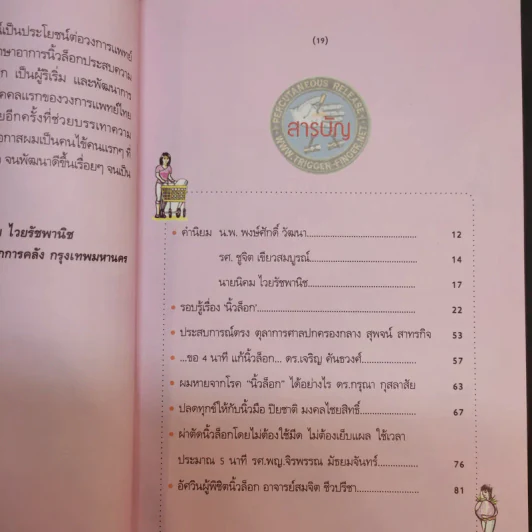 เป็นประโยชน์ต่อวงการแพทย์
ษาอาการนิ้วล็อกประสบความ
ก เป็นผู้ริเริ่ม และพัฒนาการ
คคลแรกของวงการแพทย์ไทย
ยอีกครั้งที่ช่วยบรรเทาความ
อกาสผมเป็นคนไข้คนแรกๆ ที่
จนพัฒนาดีขึ้นเรื่อยๆ จนเป็น
ไวยรัชพานิช
การคลัง กรุงเทพมหานคร
(19)
PERCUTANEOUS RELEASE
สารบัญ
WWW.TRIGGER-FINGER.NET
• คำนิยม น.พ. พงษ์ศักดิ์ วัฒนา.......... 12
รศ. ชูจิต เขียวสมบูรณ์.......... 14
นายนิคม ไวยรัชพานิช.......... 17
• รอบรู้เรื่อง 'นิ้วล็อก'.......... 22
• ประสบการณ์ตรง ตุลาการศาลปกครองกลาง สุพจน์ สาทรกิจ 53
• ...ขอ 4 นาที แก้นิ้วล็อก... ดร.เจริญ คันธวงศ์.......... 57
• ผมหายจากโรค "นิ้วล็อก" ได้อย่างไร ดร.กรุณา กุสลาสัย 63
• ปลดทุกข์ให้กับนิ้วมือ ปิยชาติ มงคลไชยสิทธิ์.......... 67
• ผ่าตัดนิ้วล็อกโดยไม่ต้องใช้มีด ไม่ต้องเย็บแผล ใช้เวลา
ประมาณ 5 นาที รศ.พญ.จิรพรรณ มัธยมจันทร์.......... 76
• อัศวินผู้พิชิตนิ้วล็อก อาจารย์สมจิต ชีวปรีชา.......... 81